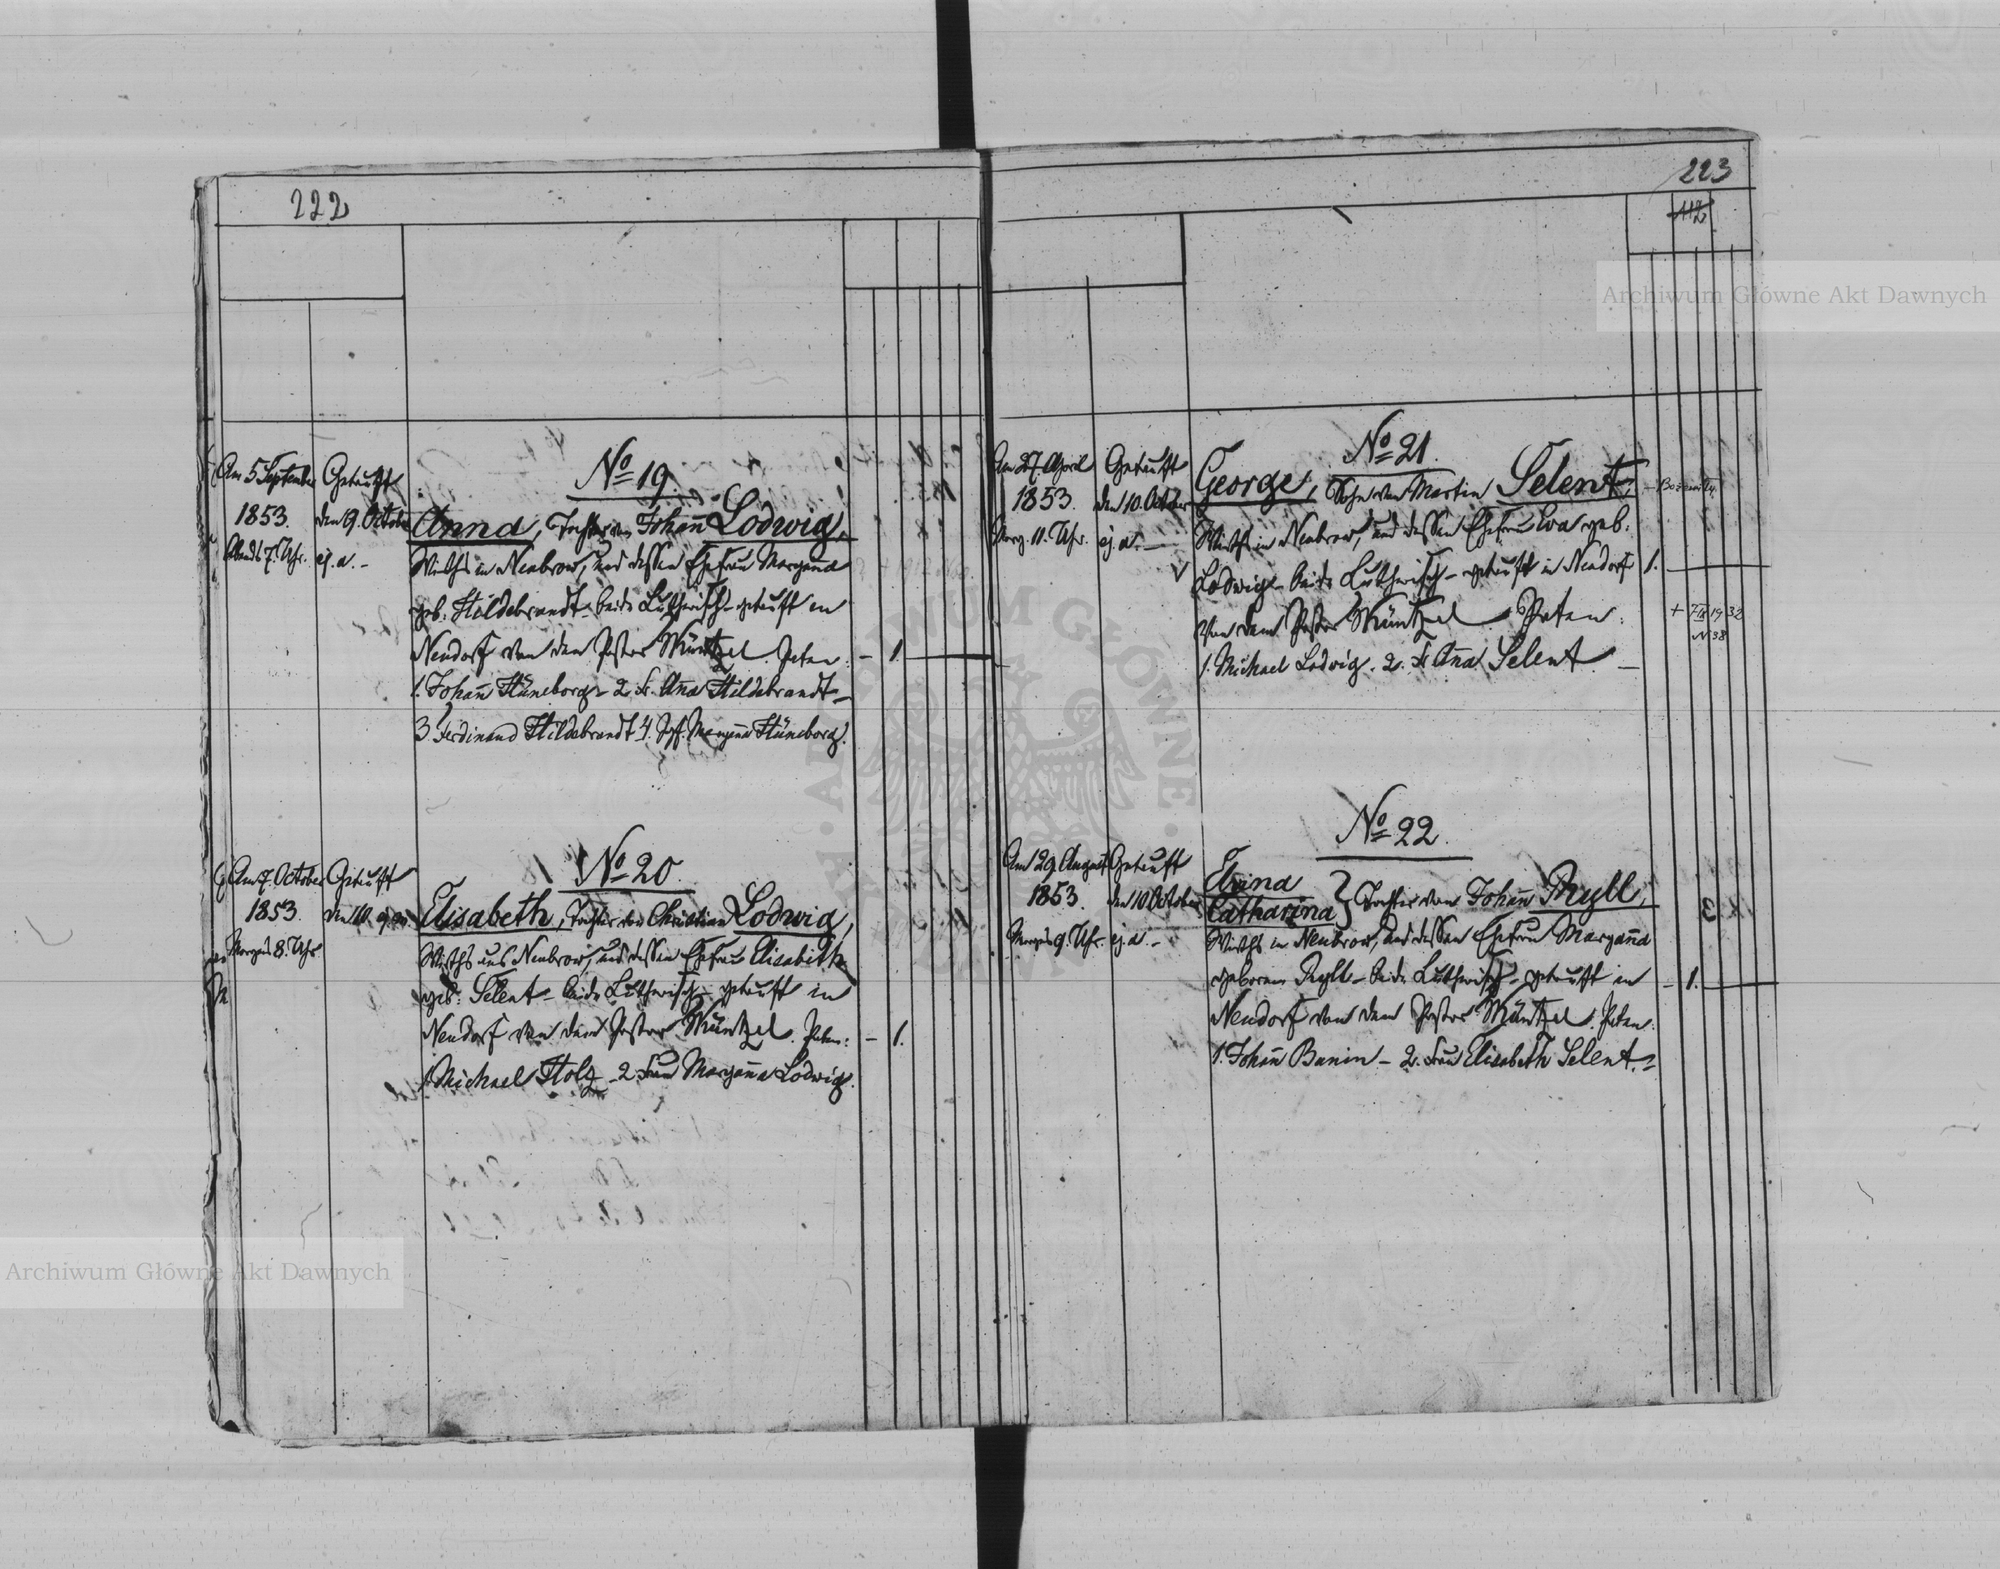 222
No 19
Am 5 September
1853.
Abends 7. Uhr.
Getauft
den 9. October
ej. a. –
Anna, Tochter von Johañ Lodwig,
Wirths in Neubrow, und dessen Ehefrau Maryanna
geb: Hildebrandt – beide Lutherisch – getauft in
Neudorf von dem Pastor Müntzel. Paten:
1. Johañ Hüneborg – 2. Fr. Aña Hildebrandt –
3 Ferdinand Hildebrandt 4. Jgf. Maryaña Hüneborg.
– 1.
No 20.
Am 7. October
1853.
Morgens 8. Uhr
Getauft
den 10.
Elisabeth, Tochter von Christian Lodwig,
Wirths aus Neubrow, und dessen Ehefrau Elisabeth
geb: Selent – beide Lutherisch – getauft in
Neudorf von dem Pastor Müntzel. Paten:
1. Michael Holz – 2 Frau Maryaña Lodwig.
– 1.
223
112
No 21.
Am 27. April
1853.
Morg. 11. Uhr.
Getauft
den 10. October
ej. a. –
George, Sohn von Martin Selent,
Wirths in Neubrow, und dessen Ehefrau Eva geb:
Lodwig – beide Lutherisch – getauft in Neudorf
von dem Pastor Müntzel. Paten:
1. Michael Lodwig. 2. Fr Aña Selent –
1.
+ 7 IX 1932
N 38
No 22.
Am 29. August
1853.
Morgens 9. Uhr.
Getauft
den 10 October
ej. a. –
Catharina } Tochter von Johañ Ryll,
Wirths in Neubrow, und dessen Ehefrau Maryaña
geborene Ryll – beide Lutherisch – getauft in
Neudorf von dem Pastor Müntzel. Paten:
1. Johañ Bunin – 2. Frau Elisabeth Selent. –
– 1.
Archiwum Główne Akt Dawnych
Archiwum Główne Akt Dawnych
ARCHIWUM GŁÓWNE AKT DAWNYCH